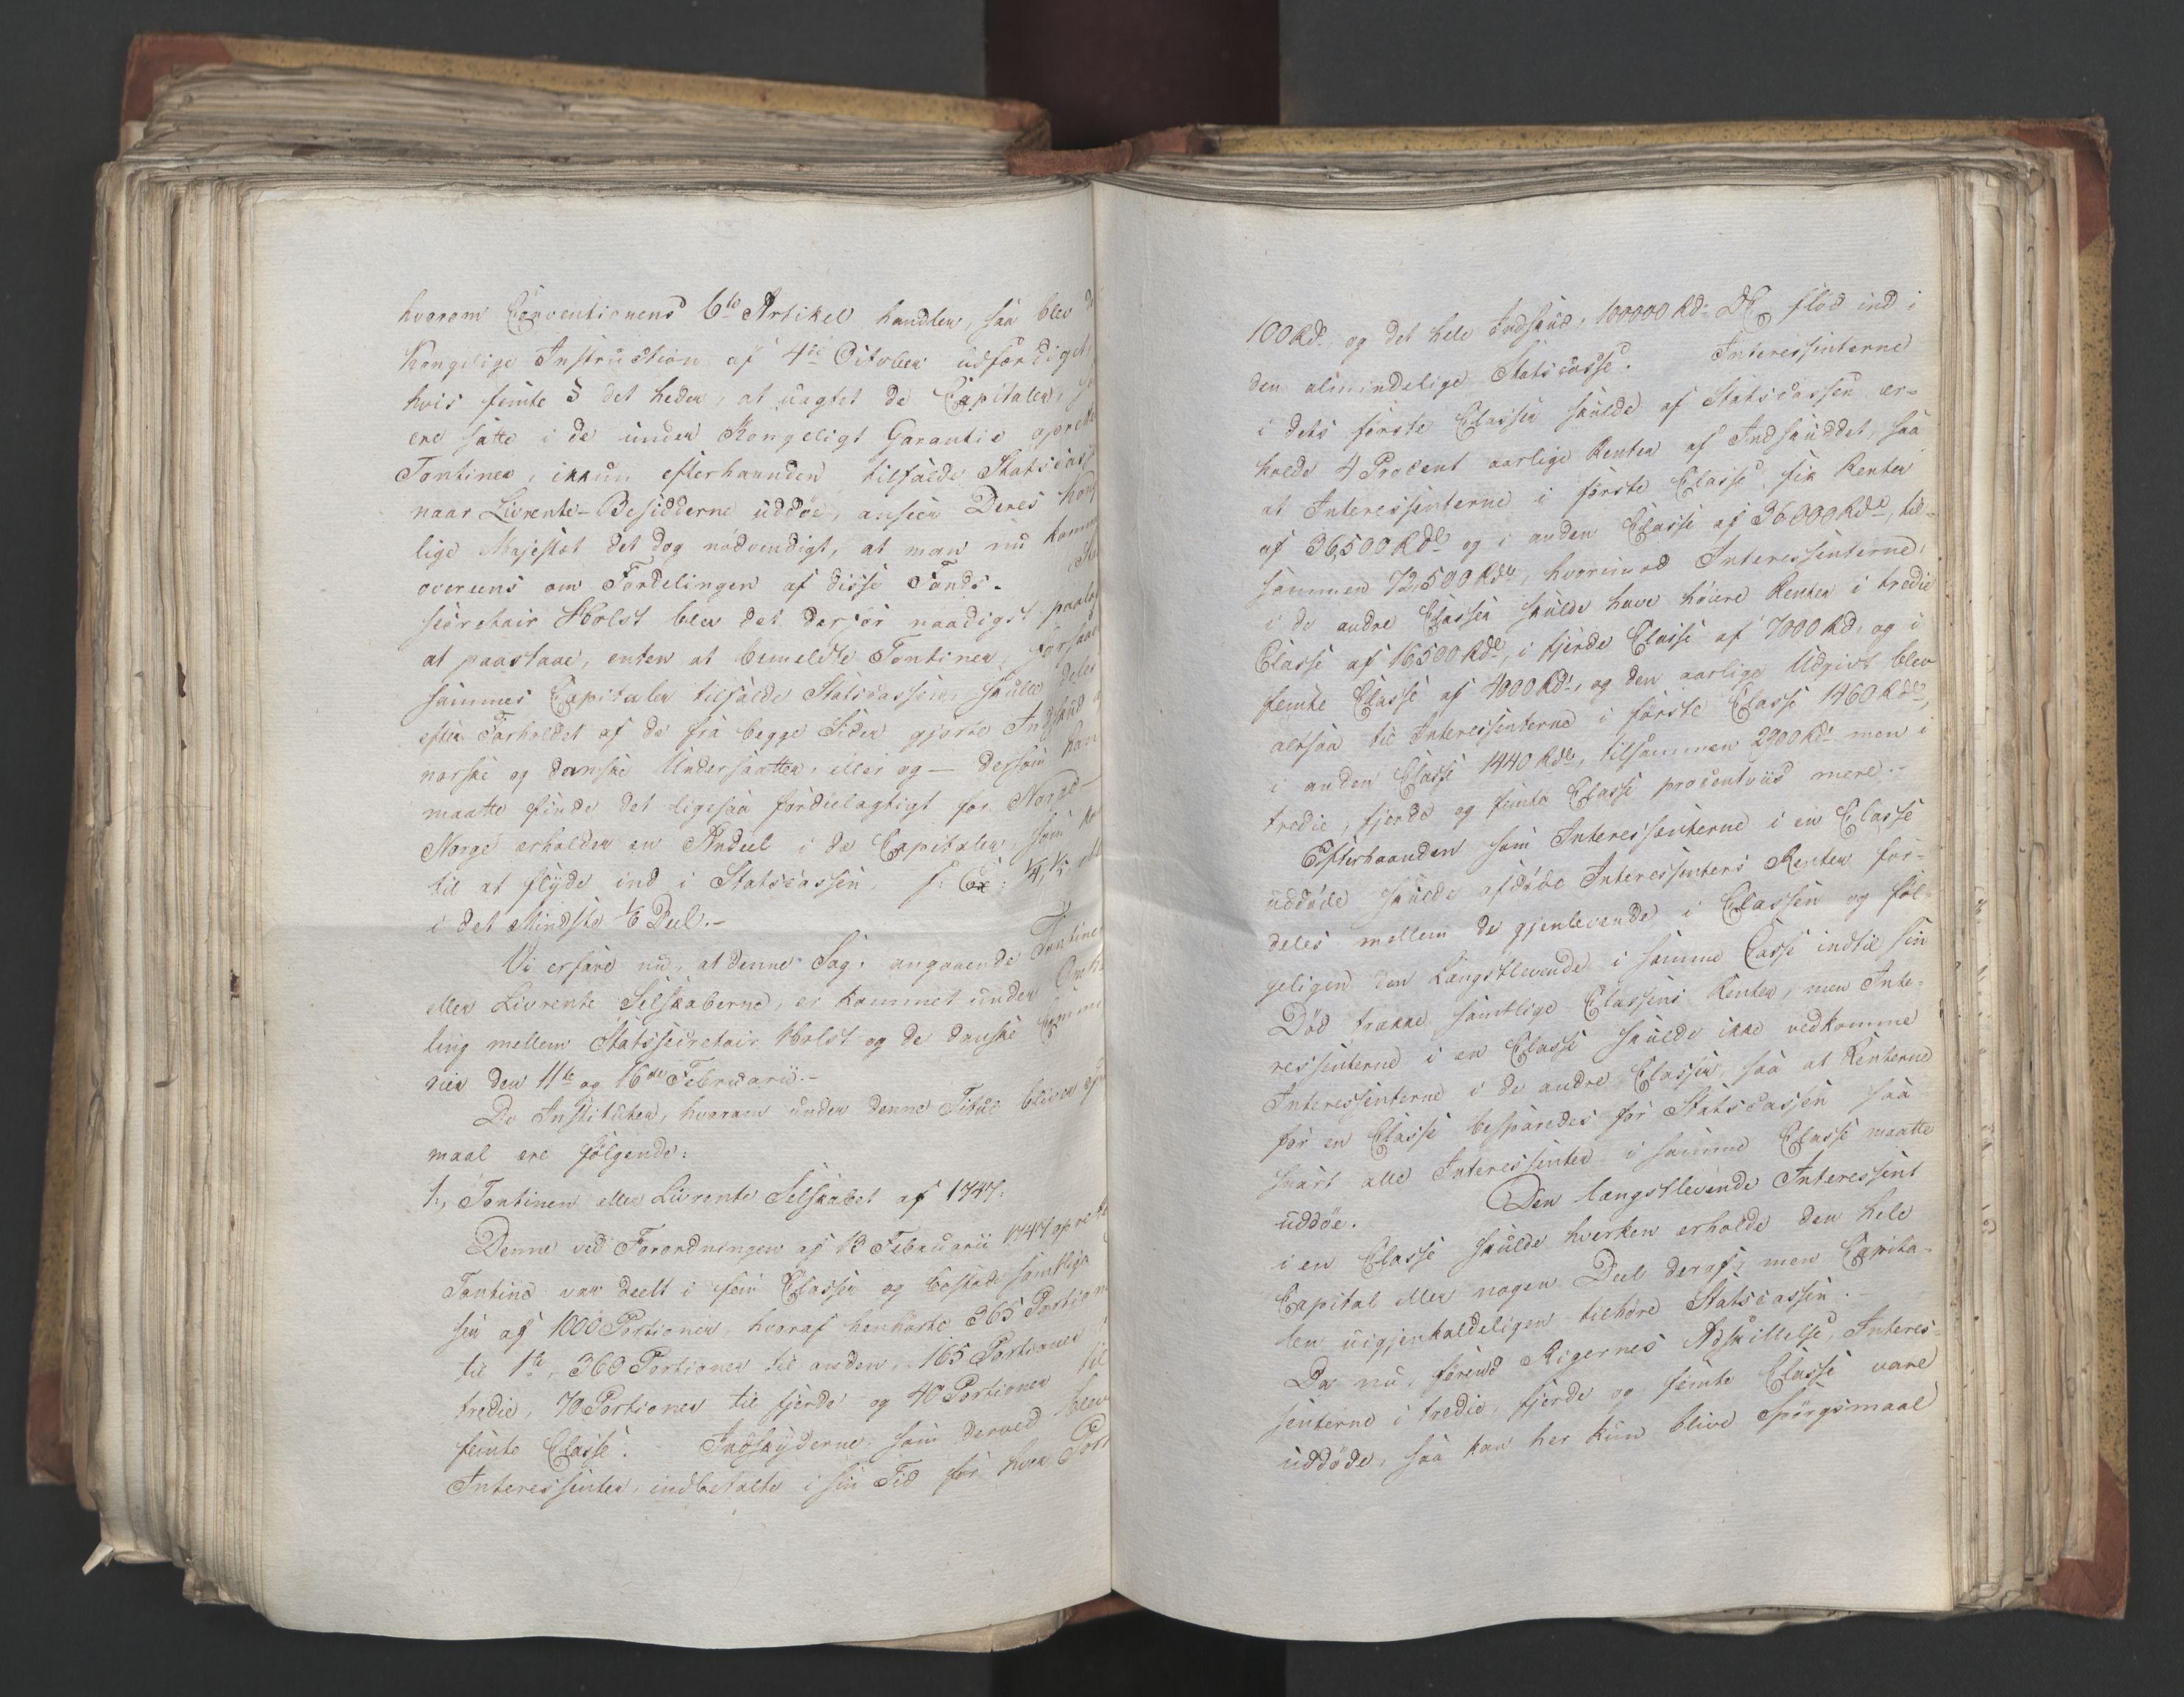 hvorom Conventionens 6te Artikel handler, saa blev d
Kongelige Instruction af 4de October udfærdiget,
hvis femte § det heder, at uagtet de Capitaler,
ere satte i de under Kongeligt Garantie oprette
Tontiner, ikkun efterhaanden tilfalde Statscass
naar Livrente-Besidderne uddöe, anseer Deres Kon
lige Majestæt det dog nödvendigt, at man nu komm
overeens om Fordelingen af disse Fonds.
secretair Holst blev det derfor naadigst paala
at paastaae, enten at bemeldte Tontiner, forsaa
sammes Capitaler tilfalde Statscassen, skulle deles
efter Forholdet af de fra begge Sider gjorte Indskud a
norske og danske Undersaatter, eller og — dersom han
maatte finde det ligesaa fordeelagtigt for Norge —
Norge erholder en Andeel i de Capitaler, som ko
til at flyde ind i Statscassen, f: Ex: 1/4, 1/5, ell
i det Mindste 1/6 Deel.-
Vi erfare nu, at denne Sag, angaaende Tontine
eller Livrente Selskaberne, er kommet under Omh
ling mellem Statssecretair Holst og de danske Comm
rier den 11te og 16de Februarii.-
De Instituter, hvorom under denne Titul bliver sp
maal ere følgende:
1., Tontinen eller Livrente Selskabet af 1747.
Denne ved Forordningen af 13 Februarii 1747 oprette
Tontine var deelt i fem Classer og bestod samtlige
ser af 1000 Portioner, hvoraf henhørte 365 Portion
til 1te, 360 Portioner til anden, 165 Portioner til
tredie, 70 Portioner til fjerde og 40 Portioner til
femte Classe. - Indskyderne, som derved blev
Interessenter, indbetalte i sin Tid for hver Port
100 Rd., og det hele Indskud, 100000 Rd. DC, flød ind i
den almindelige Statscasse. Interessenterne
i dets første Classer skulde af Statscassen er-
holde 4 Procent aarlige Renter af Indskuddet, saa
at Interessenterne i første Classe fik Renter
af 36,500 Rdl og i anden Classe af 36000 Rdl, til-
sammen 72,500 Rdl, hvorimod Interessenterne,
i de andre Classer skulde have höiere Renter i tredie
Classe af 16,500 Rdl, i fjerde Classe af 7000 Rd, og i
femte Classe af 4000 Rd, og den aarlige Udgivt blev
altsaa til Interessenterne i første Classe 1460 Rdl,
i anden Classe 1440 Rdl, tilsammen 2900 Rd men i
tredie, fjerde og femte Classe procentviis mere.-
Efterhaanden som Interessenterne i en Classe
uddøde skulde afdöde Interessenters Renter for-
deles mellem de gjenlevende i Classen og föl-
geligen den Længstlevende i samme Casse indtil sin
Död trække samtlige Classens Renter, men Inte-
ressenterne i en Classe skulde ikke vedkomme
Interessenterne i de andre Classer, saa at Renterne
for en Classe besparedes for Statscassen saa
snart alle Interessenter i samme Classe maatte
uddöe. Den længstlevende Interessent
i en Classe skulde hverken erholde den hele
Capital eller nogen Deel deraf, men Capita-
len uigjenkaldeligen tilhøre Statscassen.-
Da nu, førend Rigernes Adskillelse, Interes-
senterne i tredie, fjerde og femte Classe vare
uddöde, saa kan her kun blive Spørgsmaal